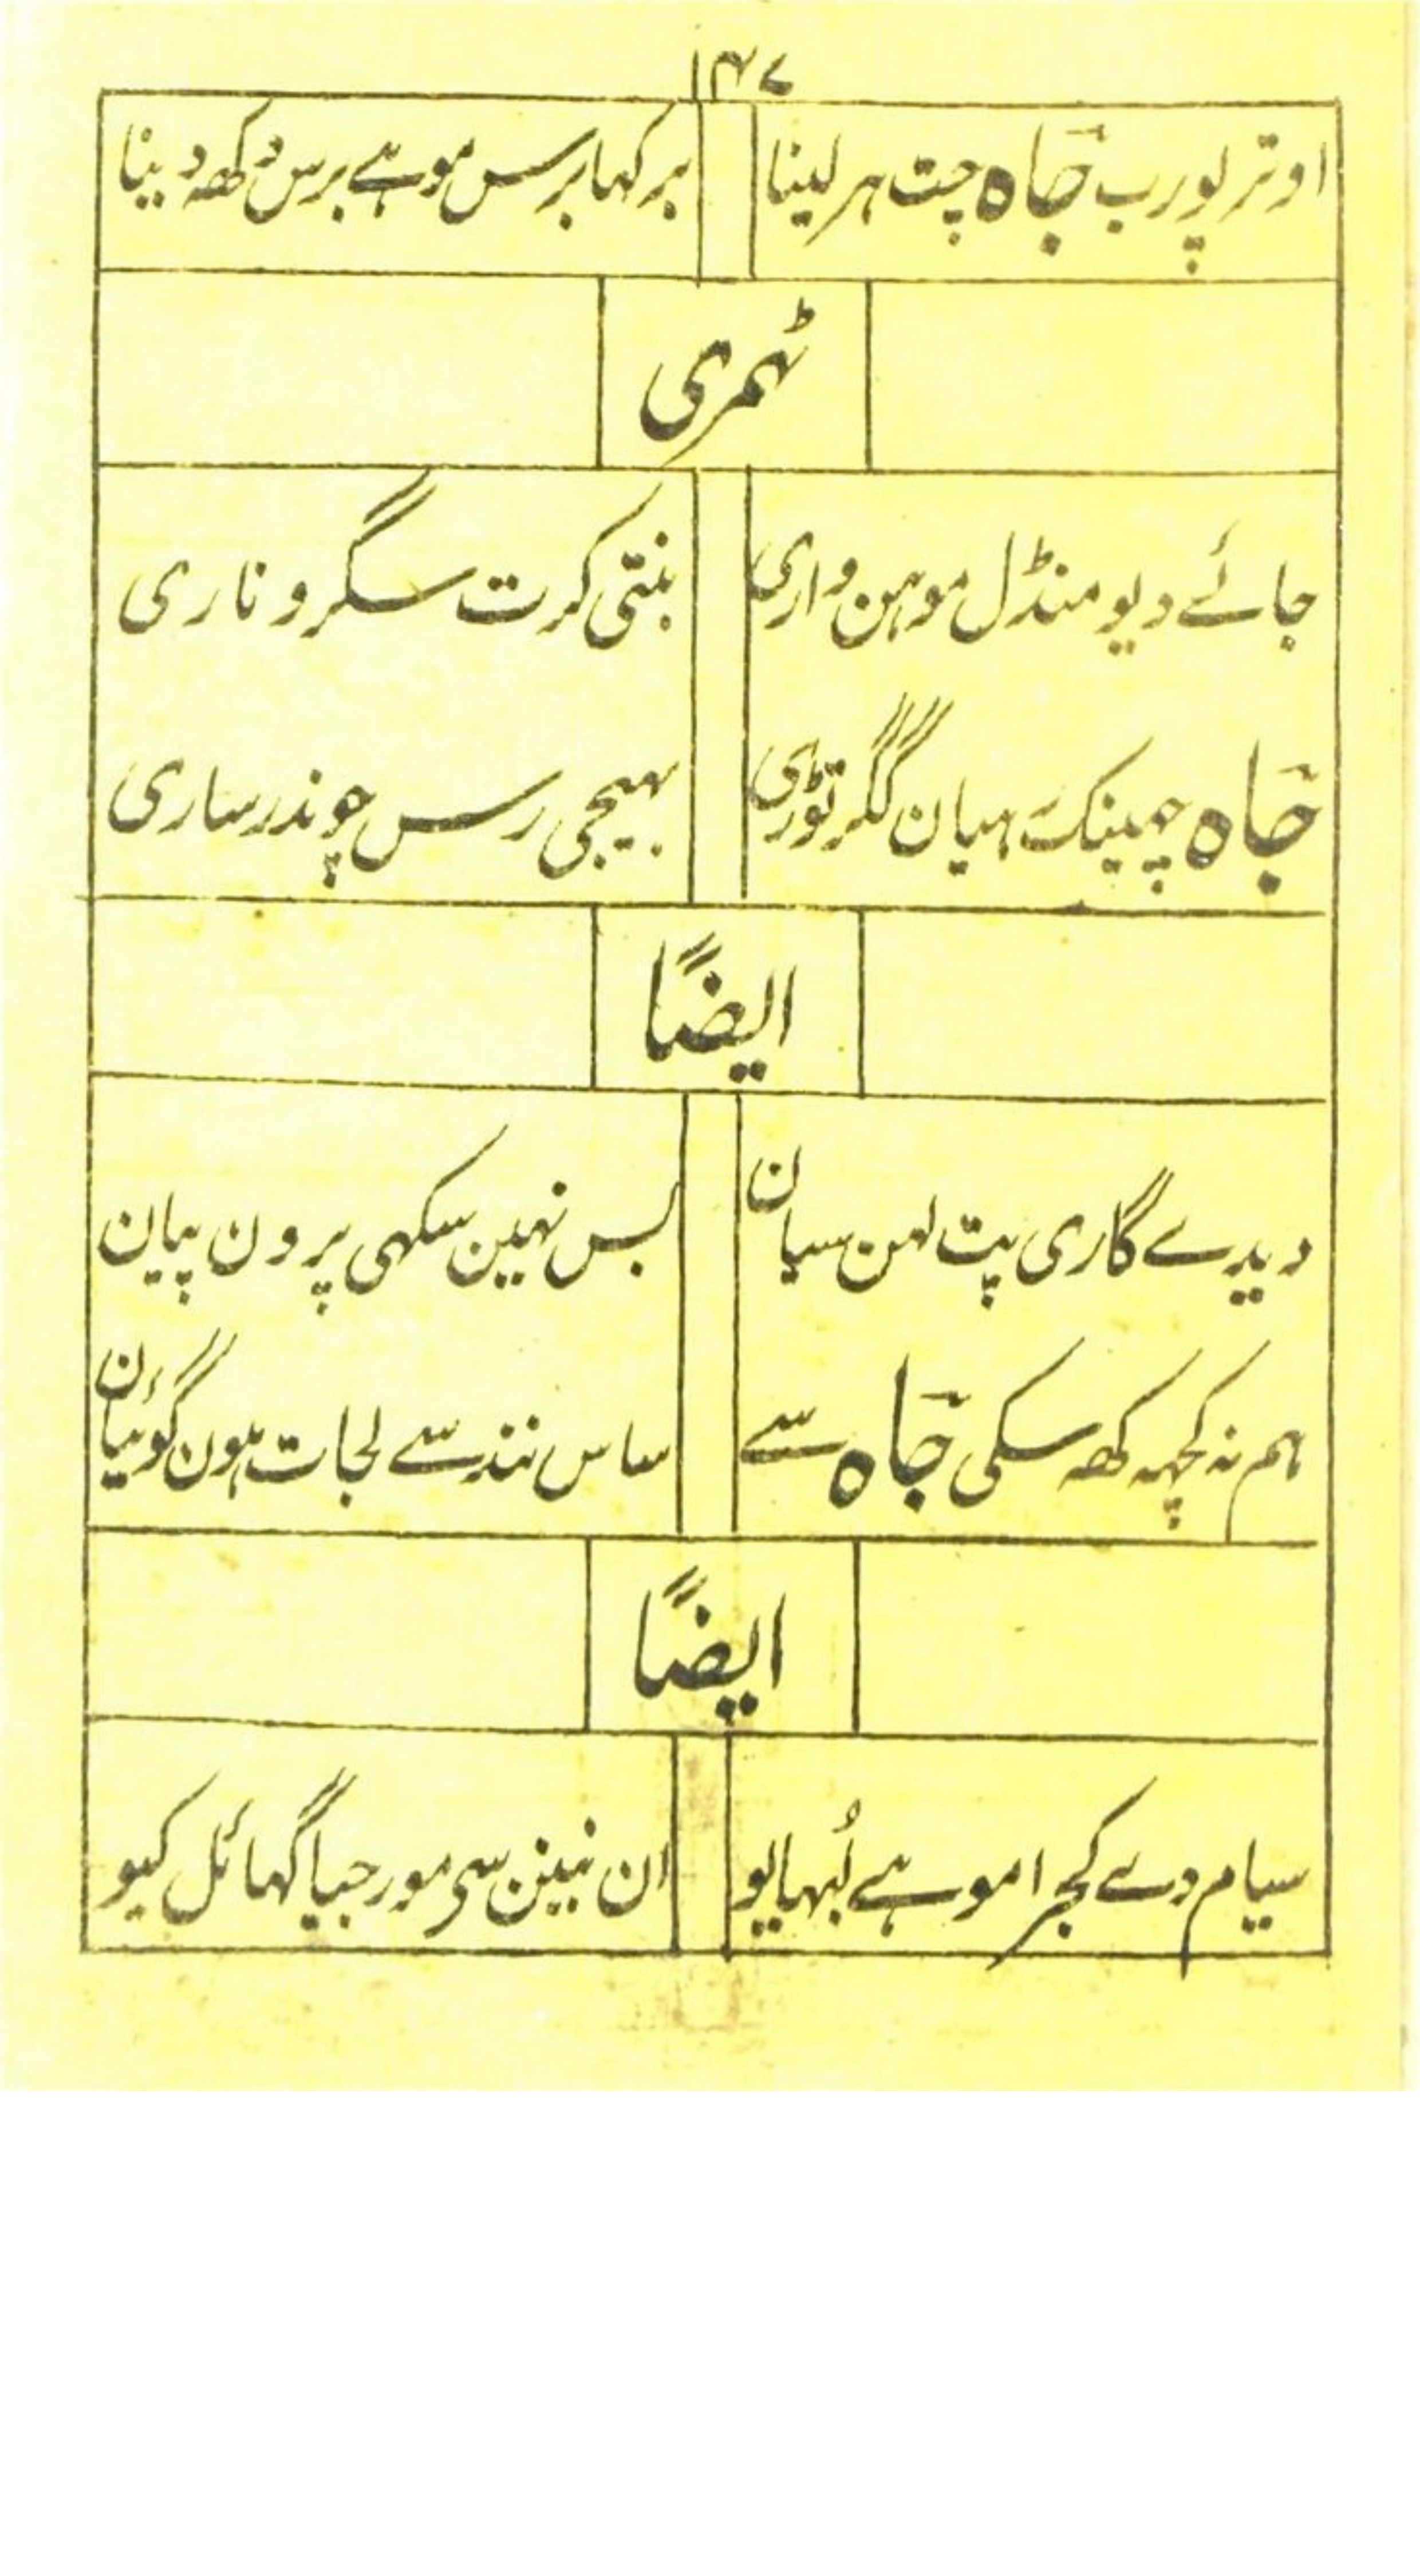 ۱۴۷
اوتر پورب جاہ چت ہر لینا
برکہا برس موہے برس دکھہ دینا
ٹھمری
جائے دیو منڈل موہن واری
بنتی کرت سگرو ناری
جاہ چھینک ہیان گگر توڑی
بھیجی رس چوندر ساری
ایضًا
دیدے گاری پت لہن سیان
بس نہین سکھی پرون پیان
ہم نہ کچھہ کھہ سکی جاہ سے
ساس نند سے لجات ہون گوئیان
ایضًا
سیام دے کجرا موہے لُبھایو
ان نینن سی مور جیا گھائل کیو